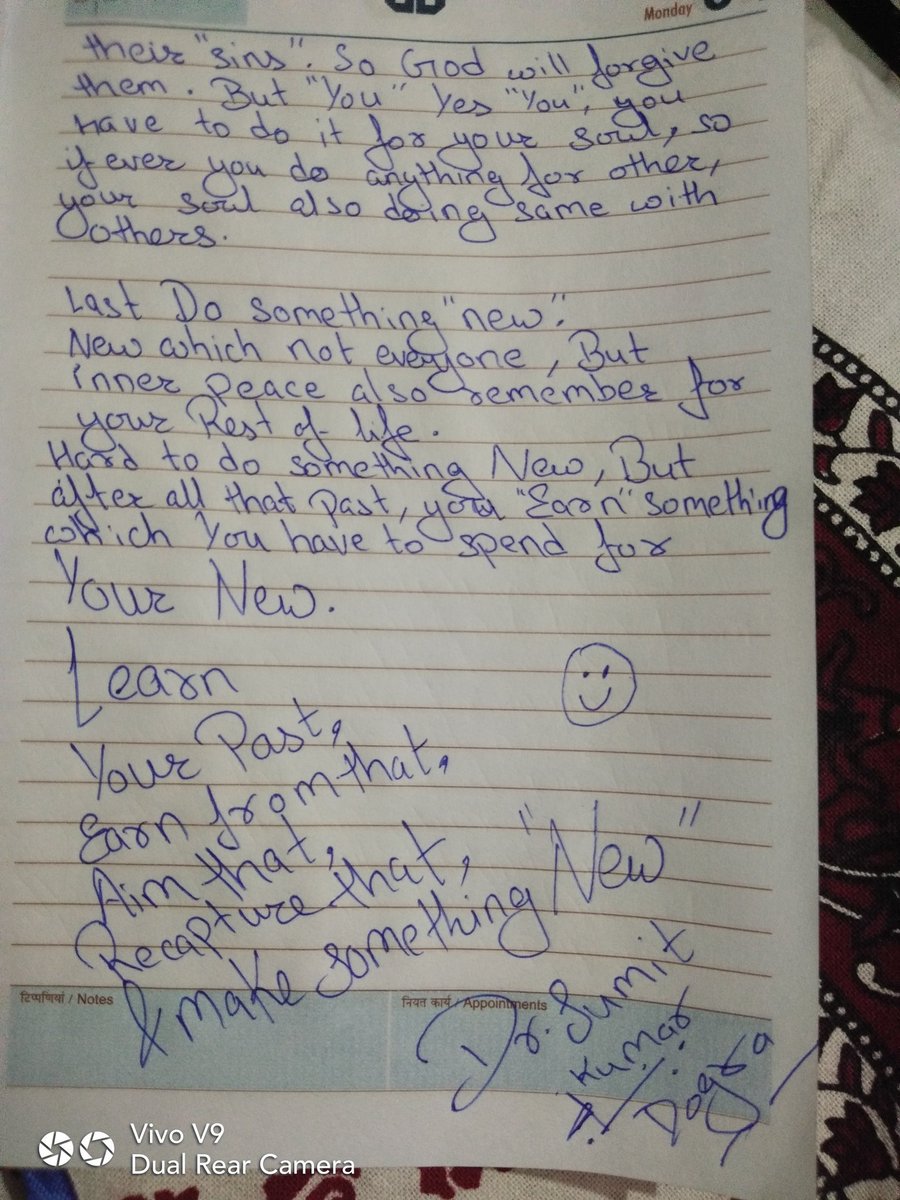 Monday
their "sins". So God will forgive
them. But "You" Yes "You", you
have to do it for your soul, so
if ever you do anything for other,
your soul also doing same with
others.
Last Do something "new".
New which not everyone, But
inner peace also remember for
your Rest of life.
Hard to do something New, But
after all that past, you "Earn" something
which You have to spend for
Your New.
Learn
Your Past,
Earn from that,
Aim that,
Recapture that,
& make something "New"
टिप्पणियां / Notes
नियत कार्य / Appointments
Dr. Sumit
Kumar
Dogra
Vivo V9
Dual Rear Camera